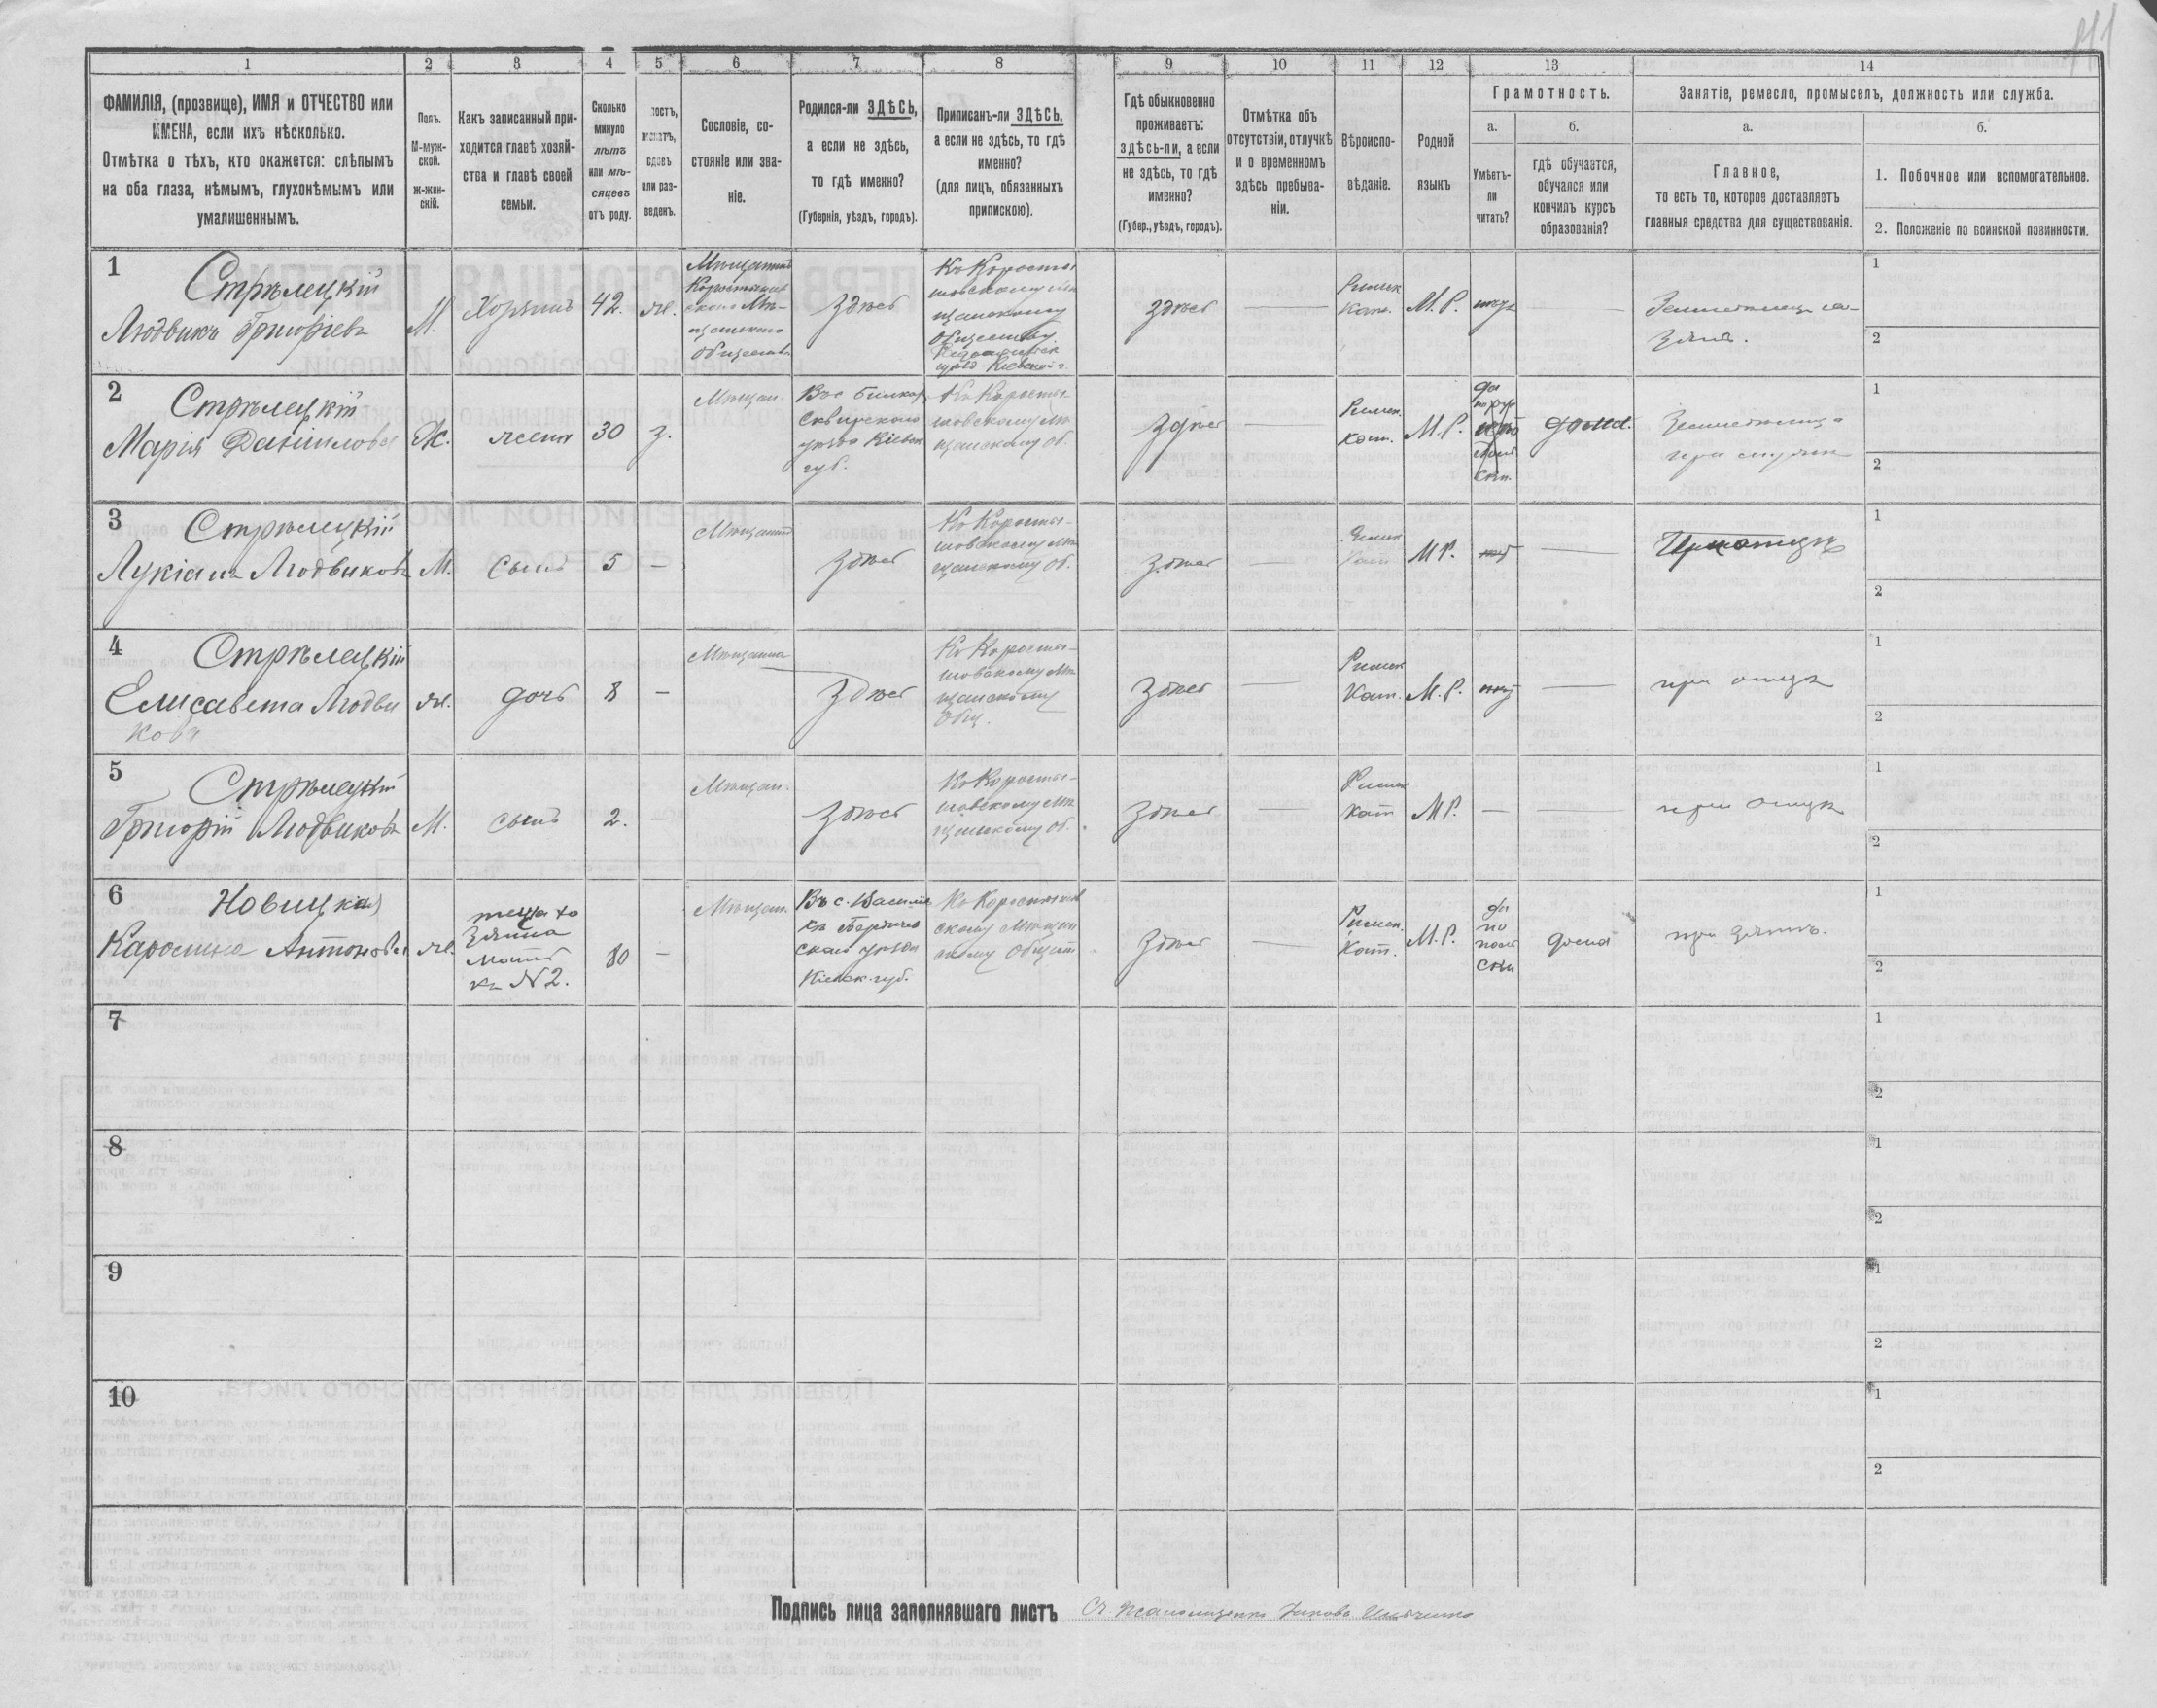 1 2 3 4 5 6 7 8 9 10 11 12 13 14
ФАМИЛІЯ, (прозвище), ИМЯ и ОТЧЕСТВО или
ИМЕНА, если ихъ нѣсколько.
Отмѣтка о тѣхъ, кто окажется: слѣпымъ
на оба глаза, нѣмымъ, глухонѣмымъ или
умалишеннымъ.
Полъ.
М-муж-
ской.
ж-жен-
скій.
Какъ записанный при-
ходится главѣ хозяй-
ства и главѣ своей
семьи.
Сколько
минуло
лѣтъ
или мѣ-
сяцевъ
отъ роду.
остъ,
женатъ,
вдовъ
или раз-
веденъ.
Сословіе, со-
стояніе или зва-
ніе.
Родился-ли ЗДѢСЬ,
а если не здѣсь,
то гдѣ именно?
(Губернія, уѣздъ, городъ).
Приписанъ-ли ЗДѢСЬ,
а если не здѣсь, то гдѣ
именно?
(для лицъ, обязанныхъ
припискою).
Гдѣ обыкновенно
проживаетъ:
здѣсь-ли, а если
не здѣсь, то гдѣ
именно?
(Губер., уѣздъ, городъ).
Отмѣтка объ
отсутствіи, отлучкѣ
и о временномъ
здѣсь пребыва-
ніи.
Вѣроиспо-
вѣданіе.
Родной
языкъ
Грамотность.
а.
Умѣетъ-
ли
читать?
б.
гдѣ обучается,
обучался или
кончилъ курсъ
образованія?
Занятіе, ремесло, промыселъ, должность или служба.
а.
Главное,
то есть то, которое доставляетъ
главныя средства для существованія.
б.
1. Побочное или вспомогательное.
2. Положеніе по воинской повинности.
1
Стрѣлецкій
Людвикъ Григоріевъ
М.
Хозяинъ
42.
Мѣщанинъ
Коростышев
скаго Мѣ-
щанскаго
Обществ
здѣсь
Ко Коросты
шовскому мѣ
щанскому
Обществу
здѣсь
Римск
Кат.
М.Р.
1
2
2
Стрѣлецкій
Марія Даниилова
Ж.
жена
30
з.
Мѣщан.
Сквирскаго
уѣзда Кіевск
губ.
Ко Коросты
шовскому мѣ
щанскому об.
здѣсь
Римск.
кат.
М.Р.
да
дома.
при мужѣ
1
2
3
Стрѣлецкій
Лукіанъ Людвиковъ
М.
Сынъ
5
—
Мѣщанинъ
здѣсь
Ко Коросты-
шовскому мѣ
щанскому об.
здѣсь
Римск
Кат
М Р.
При отцѣ
1
2
4
Стрѣлецкій
Елисавета Людви
кова
дочь
8
—
Мѣщанка
здѣсь
Ко Коросты-
шовскому мѣ
щанскому
Общ.
здѣсь
Римск
Кат.
М.Р.
при отцѣ
1
2
5
Стрѣлецкій
Григорій Людвиковъ
М.
сынъ
2.
—
Мѣщан.
здѣсь
Ко Коросты-
шовскому мѣ
щанскому об.
здѣсь
Римск
Кат
МР.
—
при отцѣ
1
2
6
Новицкая
Каролина Антонова
теща хо
зяина
мать
къ N2.
80
—
Мѣщан.
Кіевск. губ.
здѣсь
Римск.
Кат.
М.Р.
да
по
поль
ски
дома
при зятѣ.
1
2
7
1
2
8
1
2
9
1
2
10
1
2
Подпись лица заполнявшаго листъ